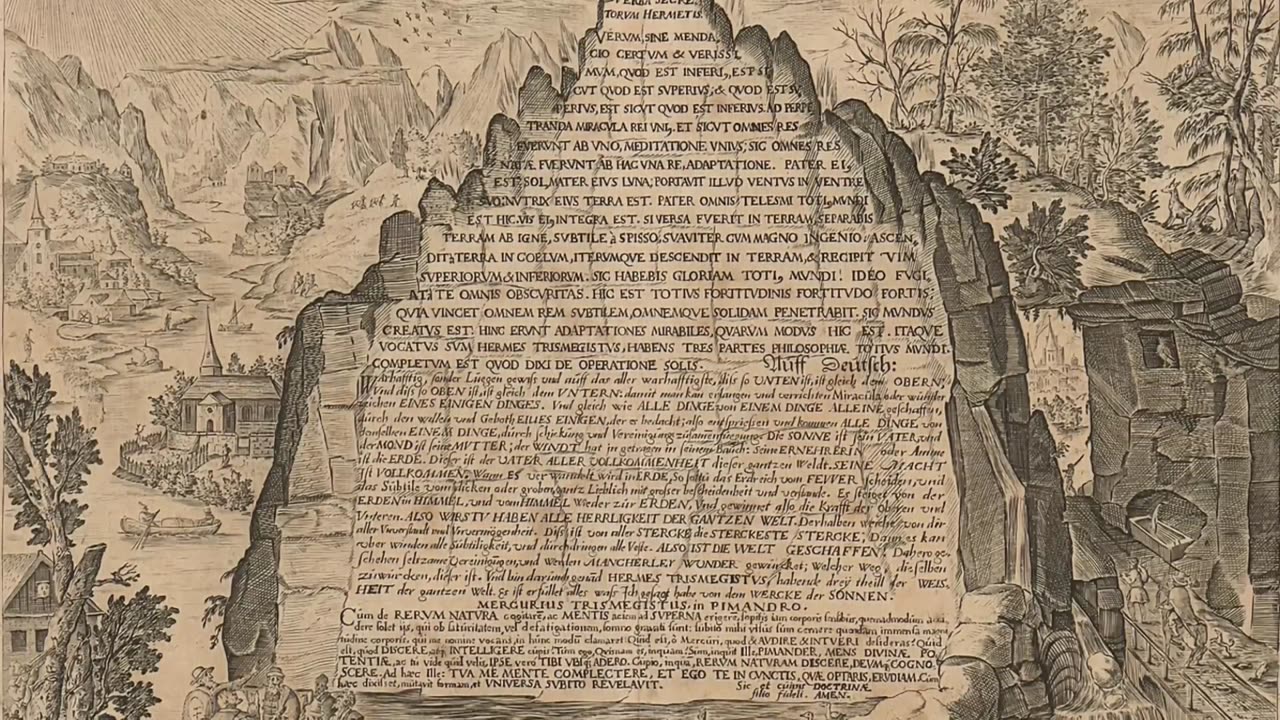 VERBA SECRE.
TORVM HERMETIS.
VERVM, SINE MENDA,
CIO CERTVM & VERISSI,
MVM, QVOD EST INFERI, EST SI,
CVT QVOD EST SVPERIVS; & QVOD EST SV,
PERIVS, EST SICVT QVOD EST INFERIVS. AD PERPE
TRANDA MIRACVLA REI VNI,. ET SICVT OMNES RES
FVERVNT AB VNO, MEDITATIONE VNIVS; SIC OMNES RES
FVERVNT AB HAC VNA RE, ADAPTATIONE. PATER EI,
EST SOL, MATER EIVS LVNA; PORTAVIT ILLVD VENTVS IN VENTRE
SVO; NVTRIX EIVS TERRA EST. PATER OMNIS TELESMI TOTI, MVNDI
EST HIC. VIS EI, INTEGRA EST. SI VERSA FVERIT IN TERRAM, SEPARABIS
TERRAM AB IGNE, SVBTILE à SPISSO, SVAVITER CVM MAGNO INGENIO: ASCEN,
DIT à TERRA IN COELVM, ITERVMQVE DESCENDIT IN TERRAM, & RECIPIT VIM
SVPERIORVM & INFERIORVM. SIC HABEBIS GLORIAM TOTI, MVNDI! IDEO FVGI,
AT à TE OMNIS OBSCVRITAS. HIC EST TOTIVS FORTITVDINIS FORTITVDO FORTIS;
QVIA VINCET OMNEM REM SVBTILEM, OMNEMQVE SOLIDAM PENETRABIT. SIC MVNDVS
CREATVS EST. HINC ERVNT ADAPTATIONES MIRABILES, QVARVM MODVS HIC EST. ITAQVE
VOCATVS SVM HERMES TRISMEGISTVS, HABENS TRES PARTES PHILOSOPHIÆ TOTIVS MVNDI.
COMPLETVM EST QVOD DIXI DE OPERATIONE SOLIS. Auff Deutsch:
Warhafftig, sonder Luegen gewiss und auff das aller warhafftigste, diss so UNTEN ist, ist gleich dem OBERN;
Vnd diss so OBEN ist, ist gleich dem VNTERN: damit man kan erlangen und verrichten Miracula oder wunder
zeichen EINES EINIGEN DINGES. Vnd gleich wie ALLE DINGE von EINEM DINGE ALLEINE geschaffen,
durch den willen und Geboth EILLES EINIGEN, der es bedacht; also entspriessen und kommen ALLE DINGE von
demselben EINEM DINGE, durch schickung und Vereinigung zusammenfuegung. Die SONNE ist sein VATER, und
der MOND ist seine MUTTER; der WINDT hat in getragen in seinem Bauch: Sein ERNEHRERIN oder Amme
ist die ERDE. Dieser ist der UATER ALLER VOLLKOMMENHEIT dieser gantzen Weldt. SEINE MACHT
ist VOLLKOMMEN; Wann ES verwandelt wird in ERDE, So soltu das Erdreich vom FEWER scheiden, und
das Subtile vom dicken oder groben, gantz Lieblich mit grosser bescheidenheit und verstande. Es steiget von der
ERDEN in HIMMEL, und vom HIMMEL Wieder zur ERDEN, Vnd gewinnet also die Krafft der Obern und
Vnteren. ALSO WIRSTV HABEN ALLE HERRLIGKEIT DER GANTZEN WELT. Derhalben weiche von dir
aller Vnverstandt und Vnvermögenheit. Diss ist von aller STERCKE die STERCKESTE STERCKE; Dann es kan
uber winden alle Subtiligkeit, und durchdringen alle Veste. ALSO IST DIE WELT GESCHAFFEN. Dahero ge,
schehen seltzame Vereinigungen, und Werden MANCHERLEY WUNDER gewürcket; Welcher Weg, dieselben
zu würcken, dieser ist. Vnd bin darumb genañd HERMES TRISMEGISTVS, habende drey theill der WEIS,
HEIT der gantzen Welt. Es ist erfüllet alles wass Ich gesagt habe von dem WERCKE der SONNEN.
MERCVRIUS TRISMEGISTUS, in PIMANDRO.
Cùm de RERVM NATVRA cogitarē, ac MENTIS aciem ad SUPERNA erigere, sopitis iam corporis sensibus, quemadmodum
rere solet ijs, qui ob saturitatem, vel defatigationem, somno gravati sunt: subitò mihi visus sum cernere quendam immensa magni
tudine corporis, qui me nomine vocans, in hunc modū clamaret: Quid est, ò Mercuri, quod & AUDIRE & INTUERI desideras? Quid
est, quod DISCERE, atq, INTELLIGERE cupis? Tùm ego, Quisnam es, inquam? Sum, inquit Ille, PIMANDER, MENS DIVINÆ PO,
TENTIÆ, ac tu vide quid velis, IPSE verò TIBI UBIq, ADERO. Cupio, inquā, RERUM NATURAM DISCERE, DEVMq, COGNO,
SCERE. Ad hæc Ille: TVA ME MENTE COMPLECTERE, ET EGO TE IN CVNCTIS, QVÆ OPTARIS, ERVDIAM. Cùm
hæc dixisset, mutavit formam, et UNIVERSA SUBITO REVELAVIT.
Sic et cuiuis DOCTRINÆ
filio fideli. AMEN.